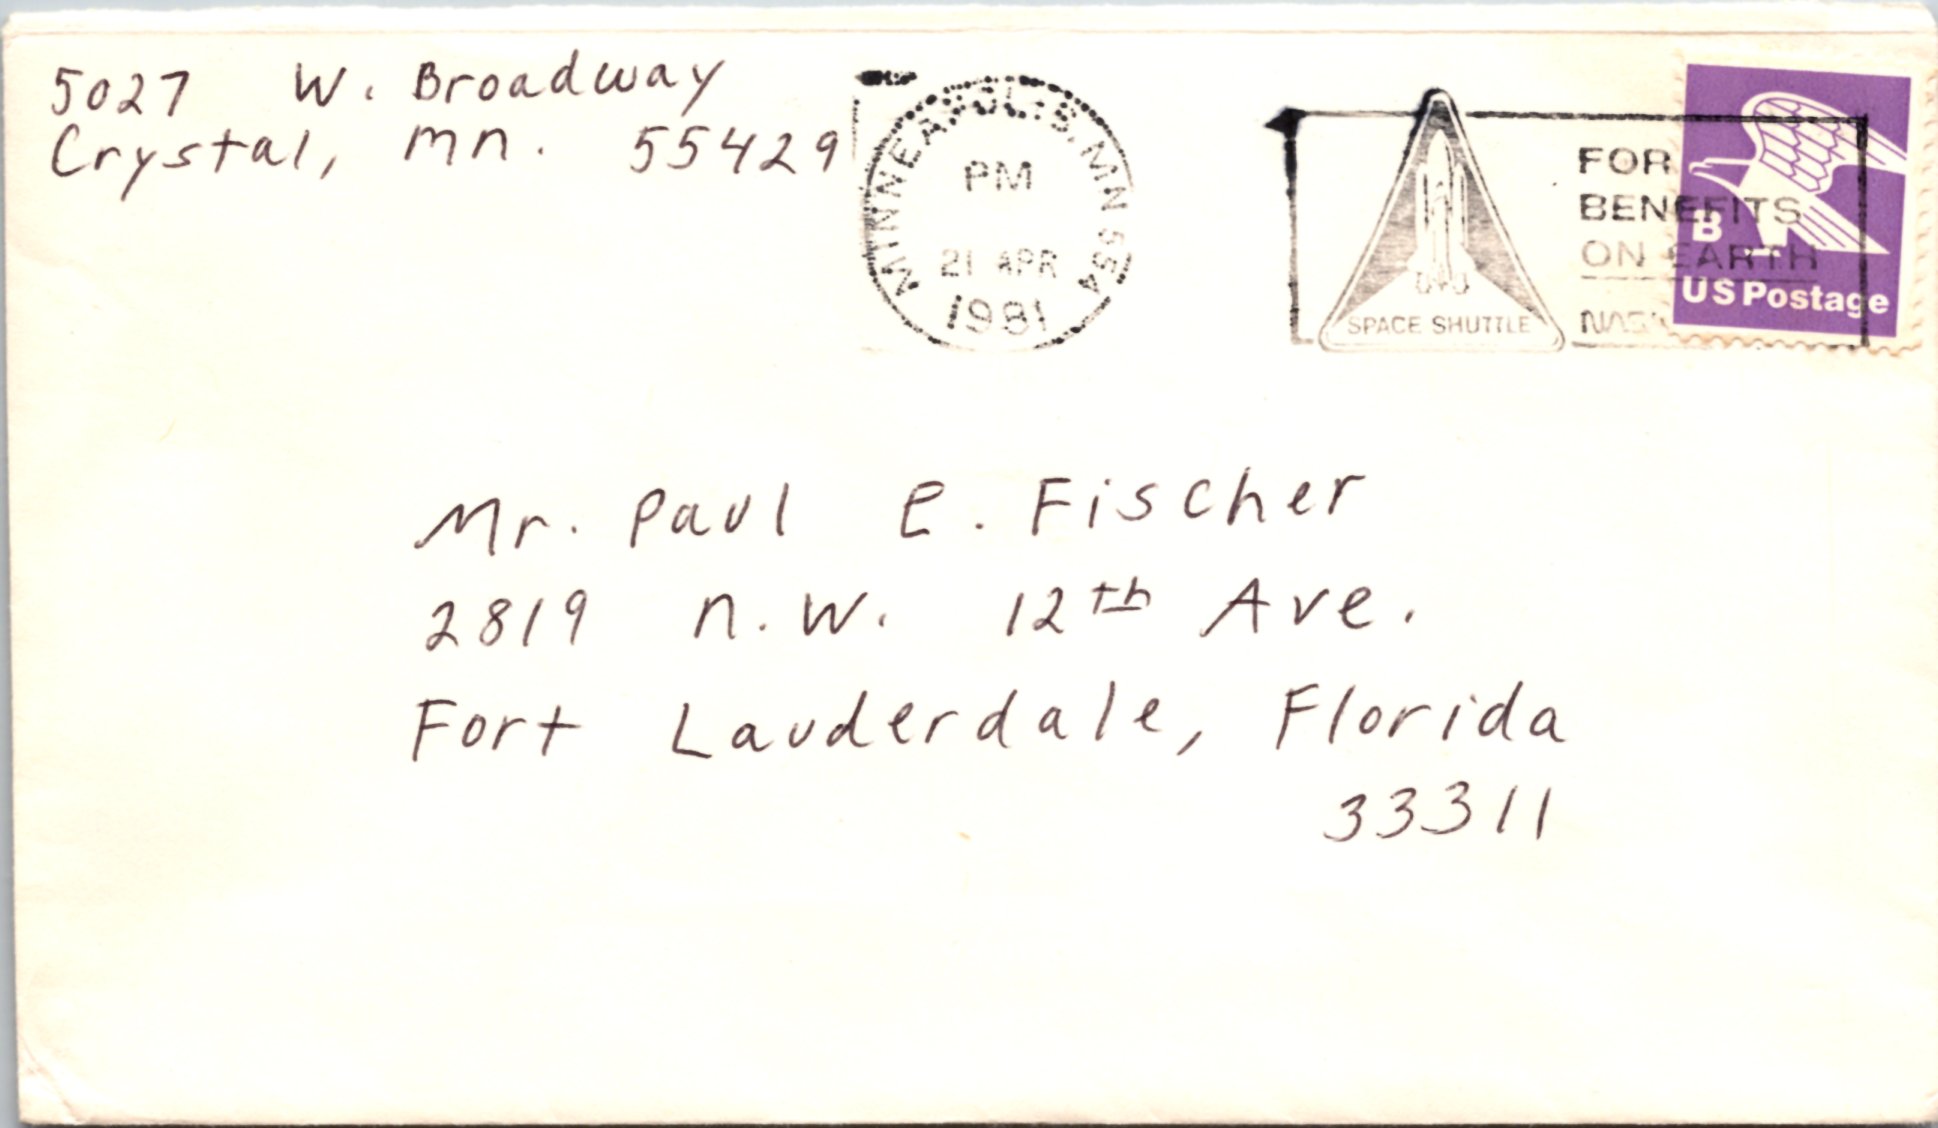 5027 W. Broadway
Crystal, Mn. 55429
MINNEAPOLIS, MN 554
PM
21 APR
1981
SPACE SHUTTLE
FOR
BENEFITS
ON EARTH
NASA
B
US Postage
Mr. Paul E. Fischer
2819 N.W. 12th Ave.
Fort Lauderdale, Florida
33311